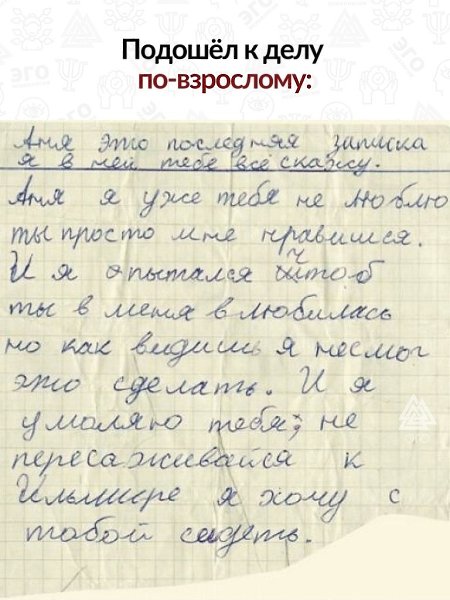 Подошёл к делу
по-взрослому:
Аня это последняя записка
я в ней тебе всё скажу.
Аня я уже тебя не люблю
ты просто мне нравишся.
И я опытался чтоб
ты в меня влюбилась
но как видишь я несмог
это сделать. И я
умоляю тебя, не
пересаживайся к
Ильмире я хочу с
тобой сидеть.
ЭГО